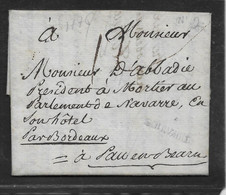 à Monsieur
Monsieur D'abbadie
Président à Mortier au
Parlement de Navarre, En
Son hôtel
Par Bordeaux
= à Pau en Bearn